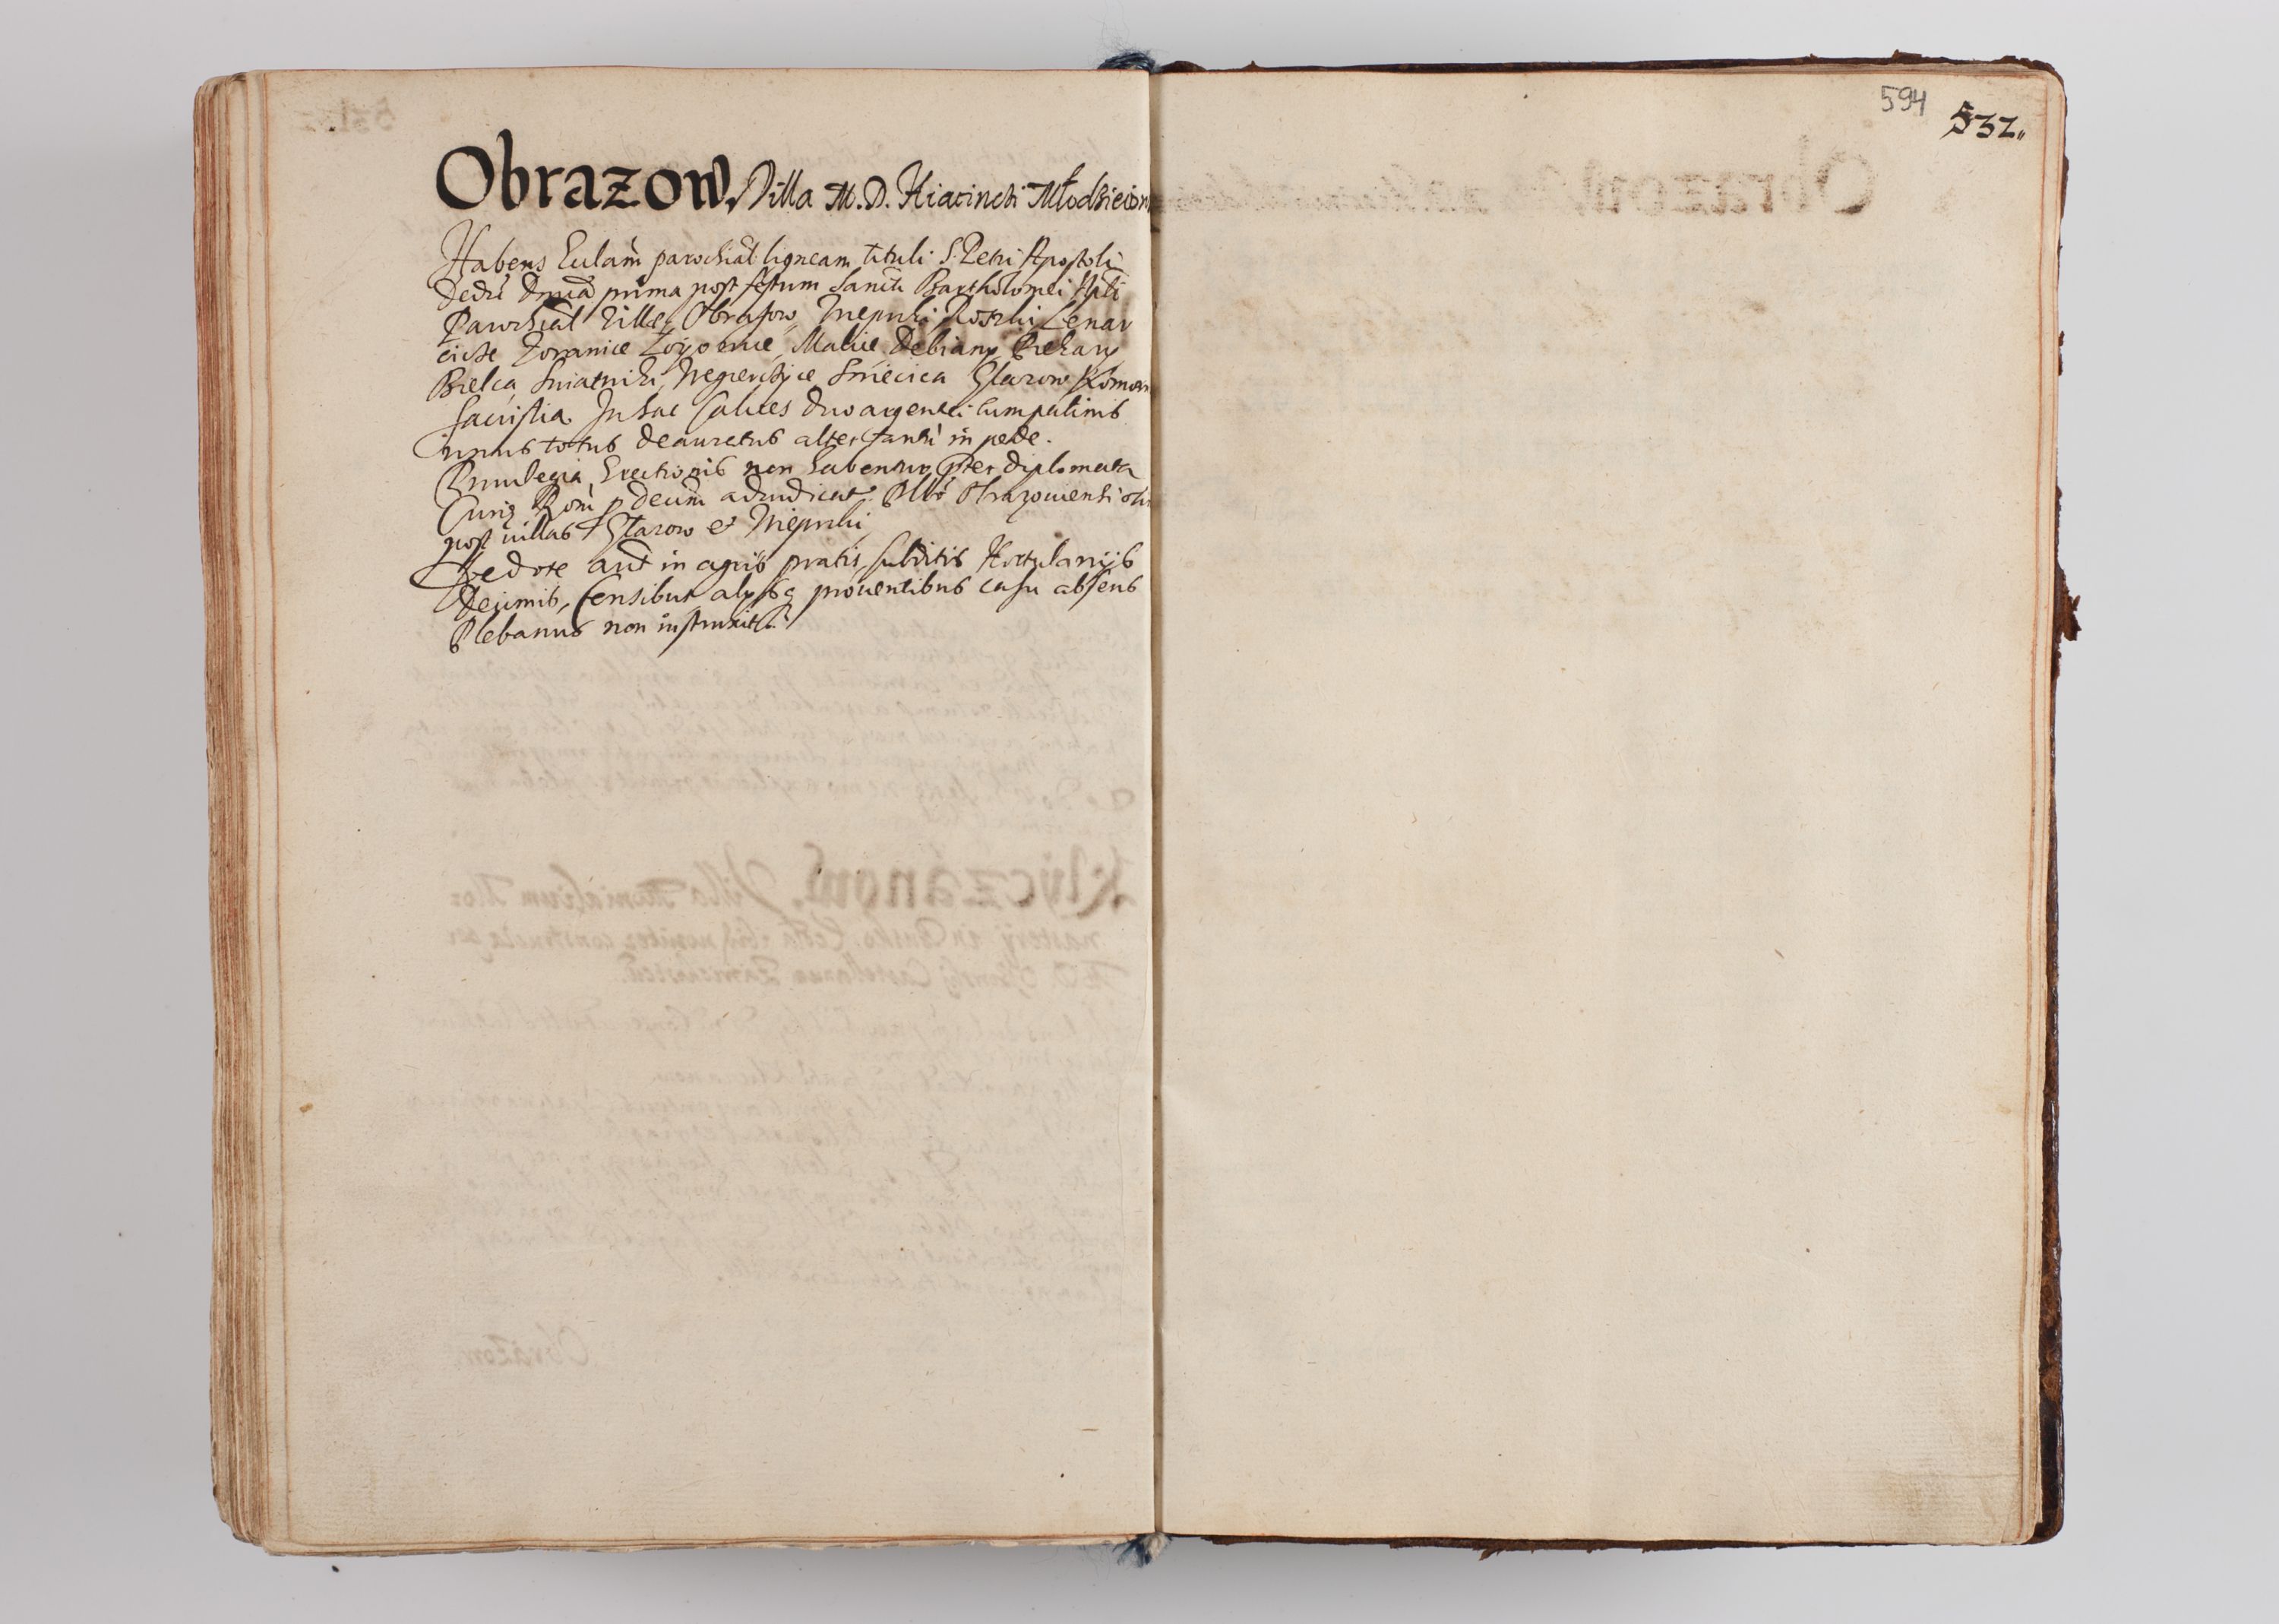 Obrazow. Villa M. D. Hiacinthi Młodzieiow
Habens Ecclam parochial: ligneam tituli S. Petri Apostoli
Dedic Dnica prima post festum Sancti Bartholomei Apli
Parochial Villae Obrazow, Lenar
cicze Zoranice Malice Debiany Piekary
Bielca Swiatniki, Wegrerczyce Smiecica Glazow Komor
Sacristia. In hac Calices duo argentei cum patinis
unus totus deauratus alter tantu in pede.
Privilegia Erectionis non habentur pter diplomata
Curiae Rom p Decim adiudicat. Plbo Obrazouiensi
post villas Glazow et
De dote aut in agris pratis, subditis Hortulanijs
Decimis, Censibus alysq prouentibus casu absens
Plebanus non instruxit.
594
532